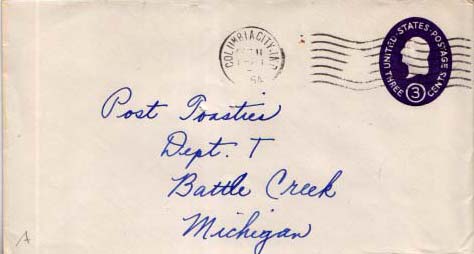 COLUMBIA CITY, IND.
UNITED · STATES · POSTAGE
THREE 3 CENTS
Post Toasties
Dept. T
Battle Creek
Michigan
A